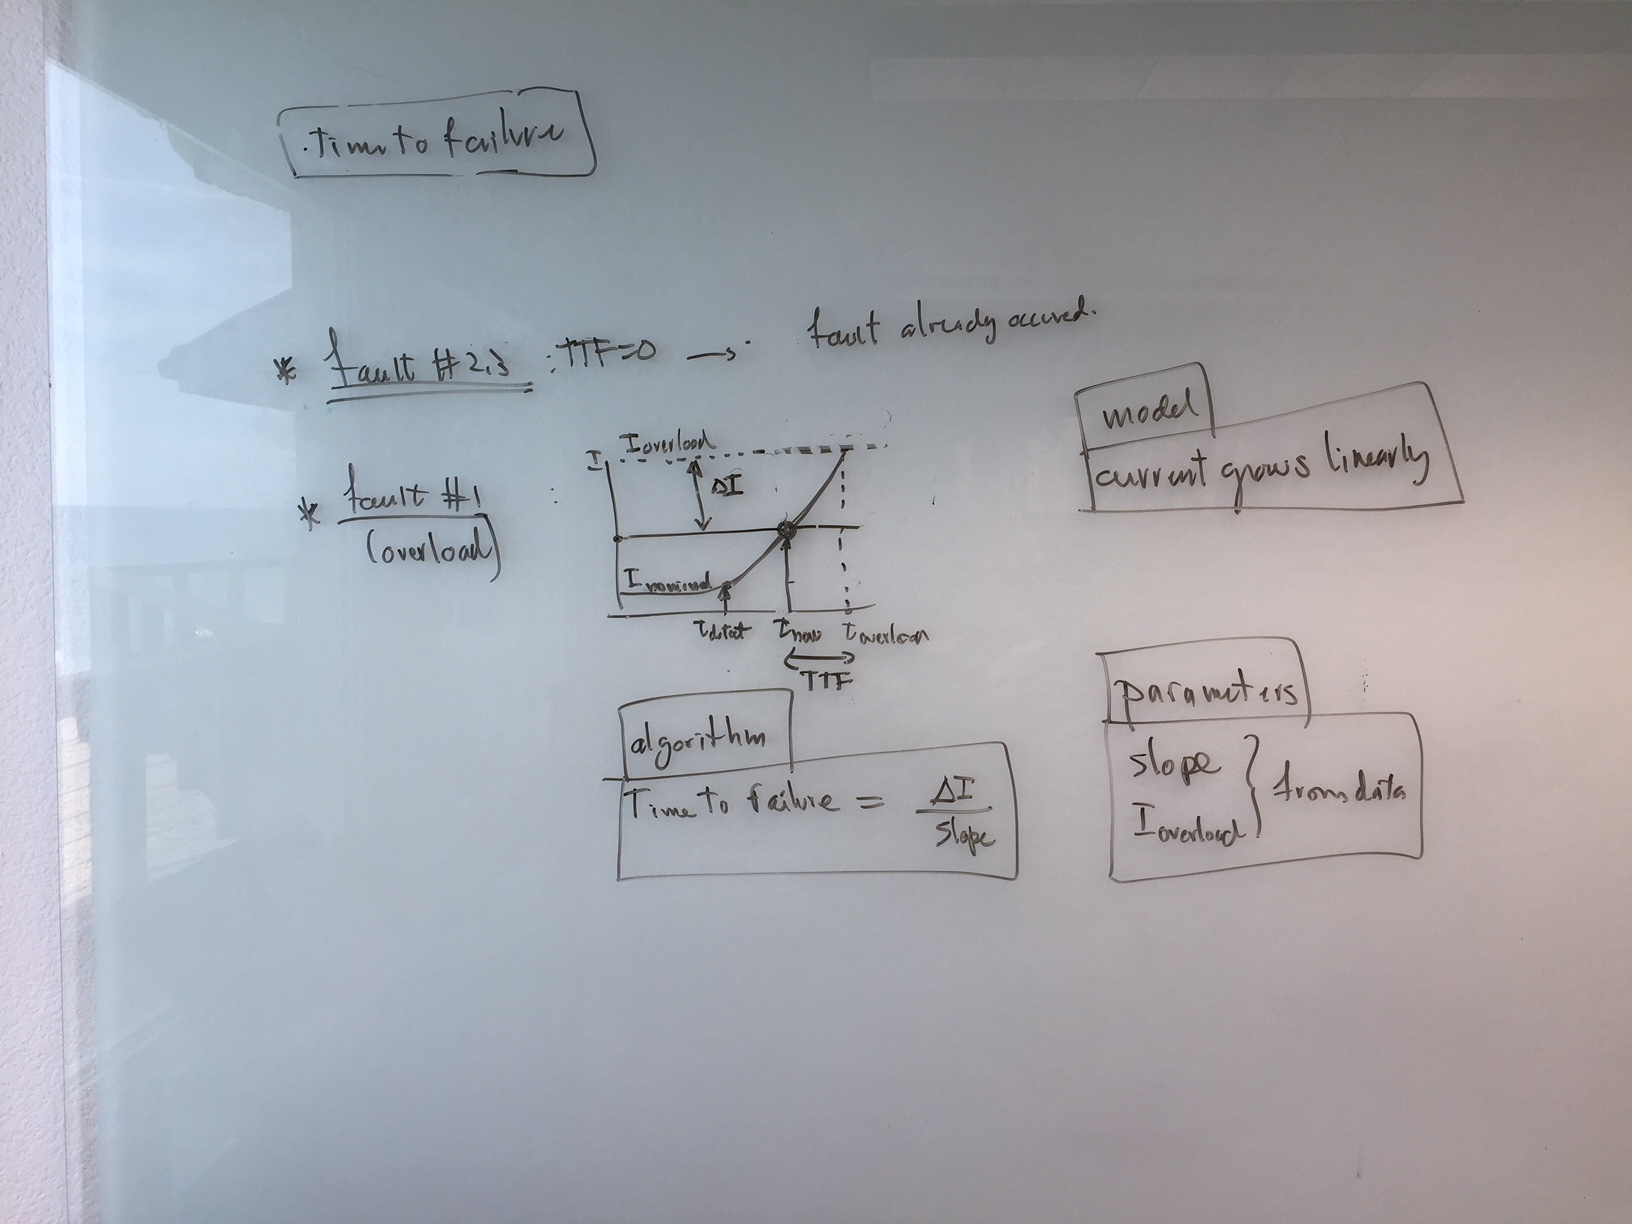 .Time to failure
* fault #2,3 : TTF=0 → fault already occured.
* fault #1 :
(overload)
I
I overload
ΔI
I nominal
t detect
t now
t overload
TTF
model
current grows linearly
algorithm
Time to failure = ΔI / slope
parameters
slope
I overload
} from data